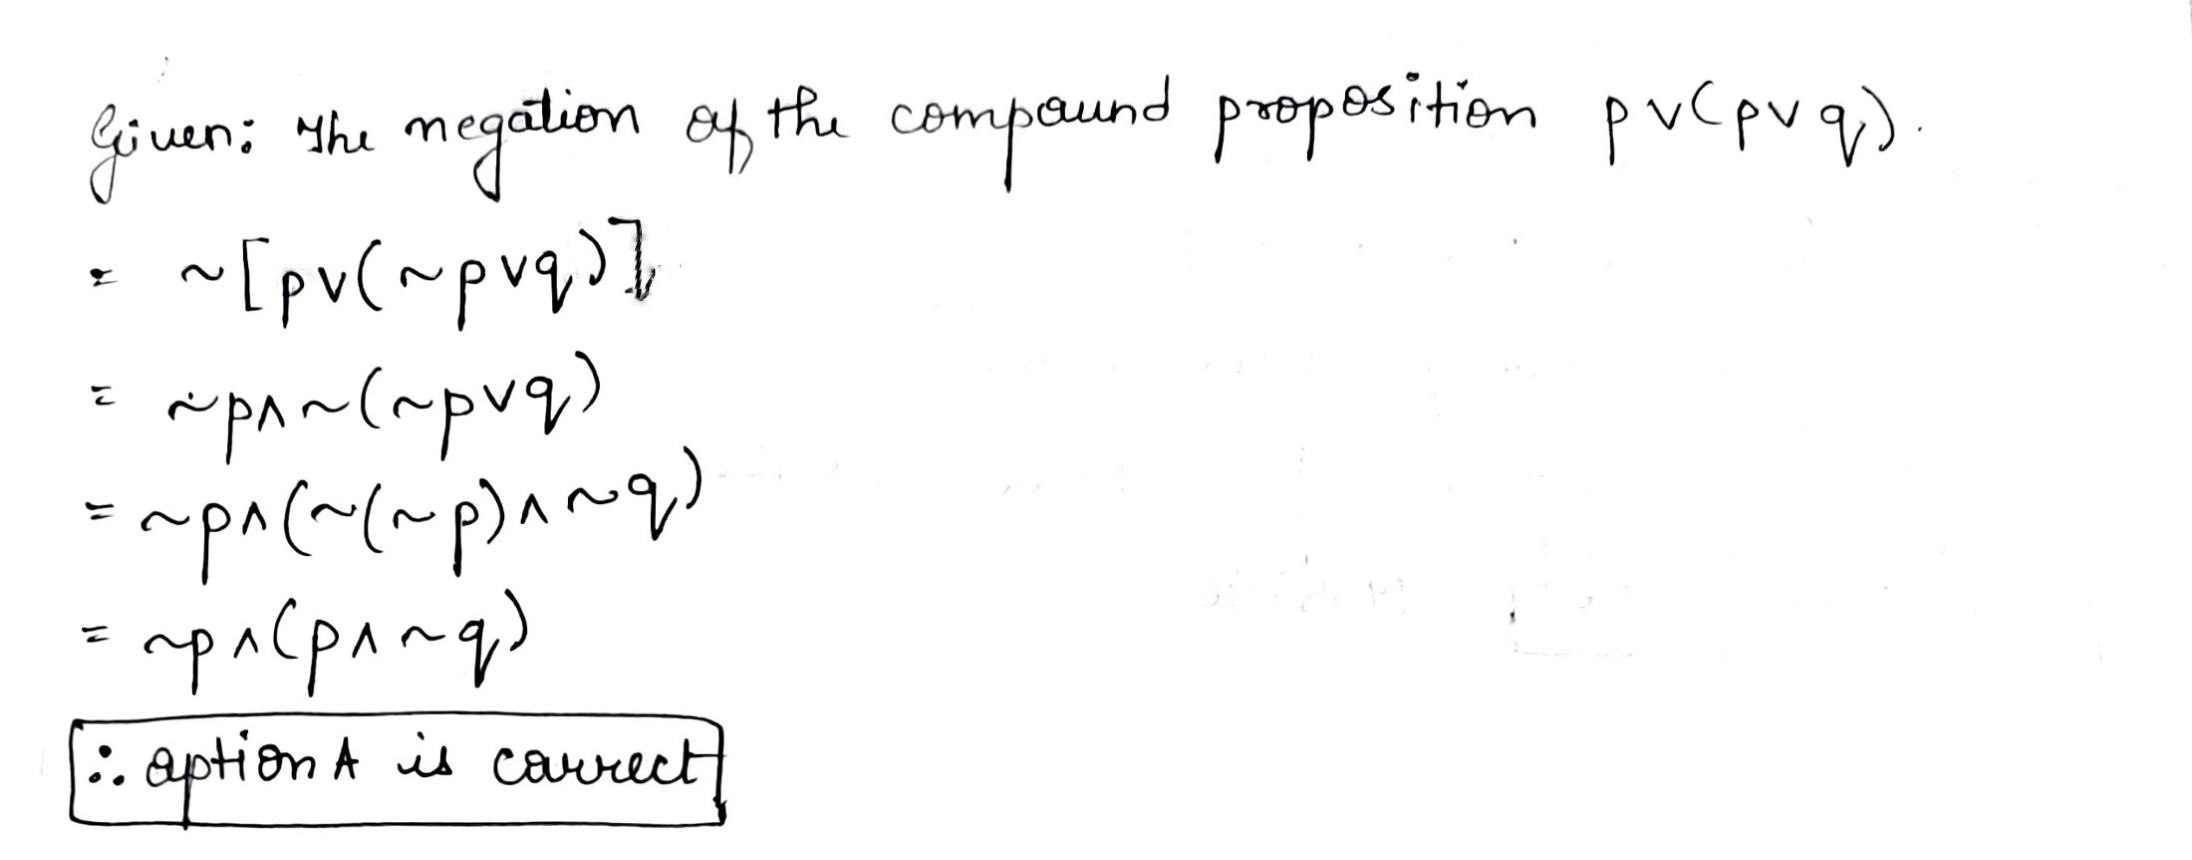 Given: The negation of the compound proposition p∨(p∨q).
= ~[p∨(~p∨q)]
= ~p∧~(~p∨q)
= ~p∧(~(~p)∧~q)
= ~p∧(p∧~q)
∴ option A is correct